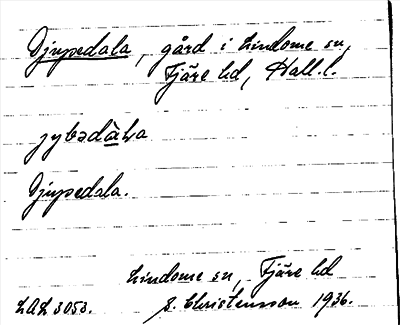 Djupedala, gård i Lindome sn,
Fjäre hd, Hall.l.
jybədàʟa
Djupedala.
Lindome sn, Fjäre hd
LAL 3053. S. Christensson 1936.